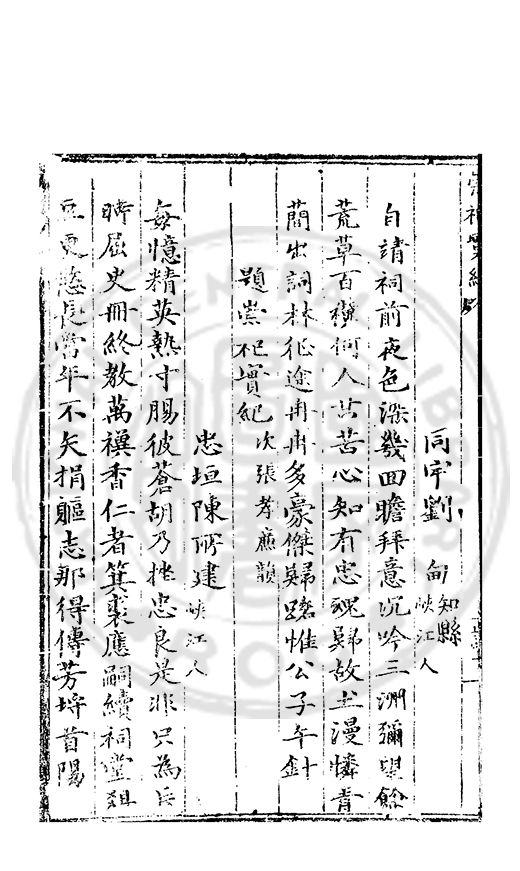 崇祀實紀
同宇劉 甸 知縣 峽江人
自靖祠前夜色深幾回瞻拜意沉吟三洲彌望餘
荒草百禩何人苦心知有忠魂歸故土漫憐青
簡出詞林征途冉冉多豪傑歸蹟惟公子午針
題崇祀實紀 次張孝廉韻
忠垣陳所建 峽江人
每憶精英熱寸腸彼蒼胡乃挫忠良是非只為
時屈史冊終教萬禩香仁者箕裘應嗣續祠堂俎
豆更悠長當年不矢捐軀志那得傳芳埓首陽